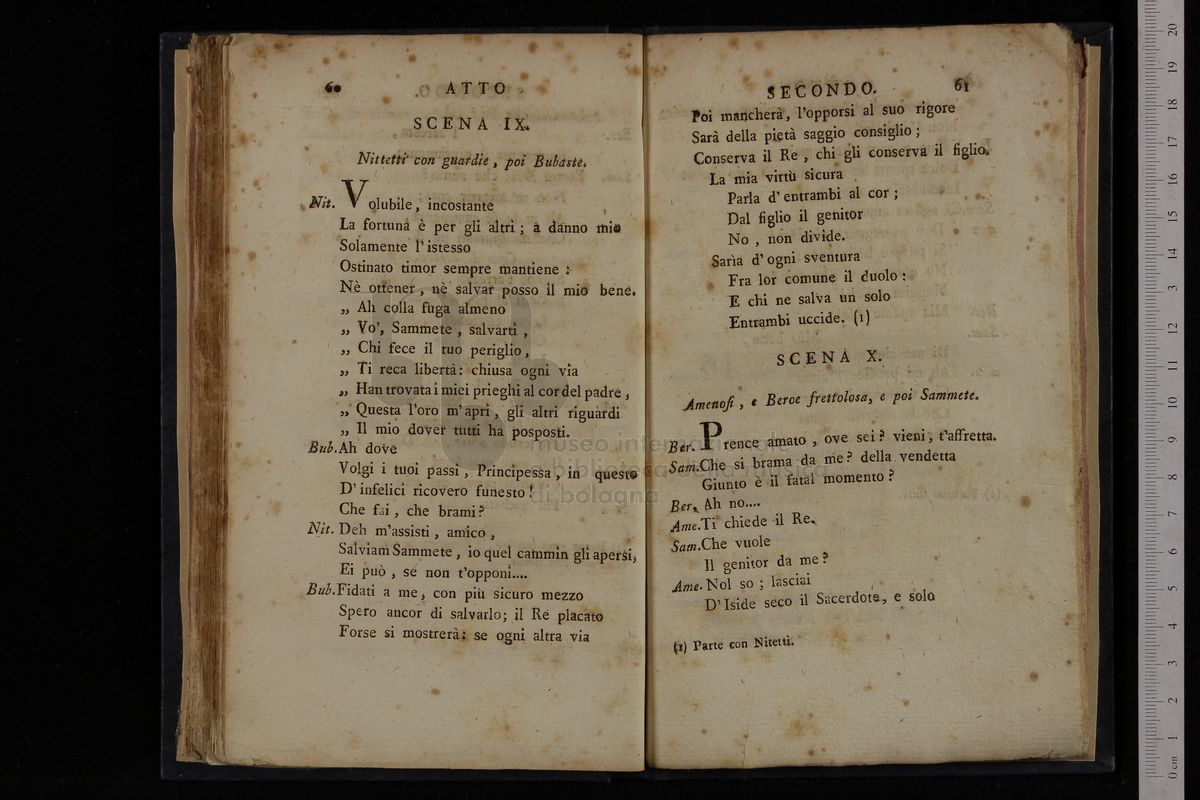 60
ATTO
SCENA IX.
Nittetti con guardie, poi Bubaste.
Nit. Volubile, incostante
La fortuna è per gli altri; a danno mio
Solamente l'istesso
Ostinato timor sempre mantiene:
Nè ottener, nè salvar posso il mio bene.
„ Ah colla fuga almeno
„ Vo', Sammete, salvarti,
„ Chi fece il tuo periglio,
„ Ti reca libertà: chiusa ogni via
„ Han trovata i miei prieghi al cor del padre,
„ Questa l'oro m'aprì, gli altri riguardi
„ Il mio dover tutti ha posposti.
Bub. Ah dove
Volgi i tuoi passi, Principessa, in questo
D'infelici ricovero funesto!
Che fai, che brami?
Nit. Deh m'assisti, amico,
Salviam Sammete, io quel cammin gli apersi,
Ei può, se non t'opponi....
Bub. Fidati a me, con più sicuro mezzo
Spero ancor di salvarlo; il Re placato
Forse si mostrerà: se ogni altra via
SECONDO.
61
Poi mancherà, l'opporsi al suo rigore
Sarà della pietà saggio consiglio;
Conserva il Re, chi gli conserva il figlio.
La mia virtù sicura
Parla d'entrambi al cor;
Dal figlio il genitor
No, non divide.
Sarìa d'ogni sventura
Fra lor comune il duolo:
E chi ne salva un solo
Entrambi uccide. (1)
SCENA X.
Amenofi, e Beroe frettolosa, e poi Sammete.
Ber. Prence amato, ove sei? vieni, t'affretta.
Sam. Che si brama da me? della vendetta
Giunto è il fatal momento?
Ber. Ah no....
Ame. Ti chiede il Re.
Sam. Che vuole
Il genitor da me?
Ame. Nol so; lasciai
D'Iside seco il Sacerdote, e solo
(1) Parte con Nitetti.
museo internazionale
biblioteca della musica
di bologna